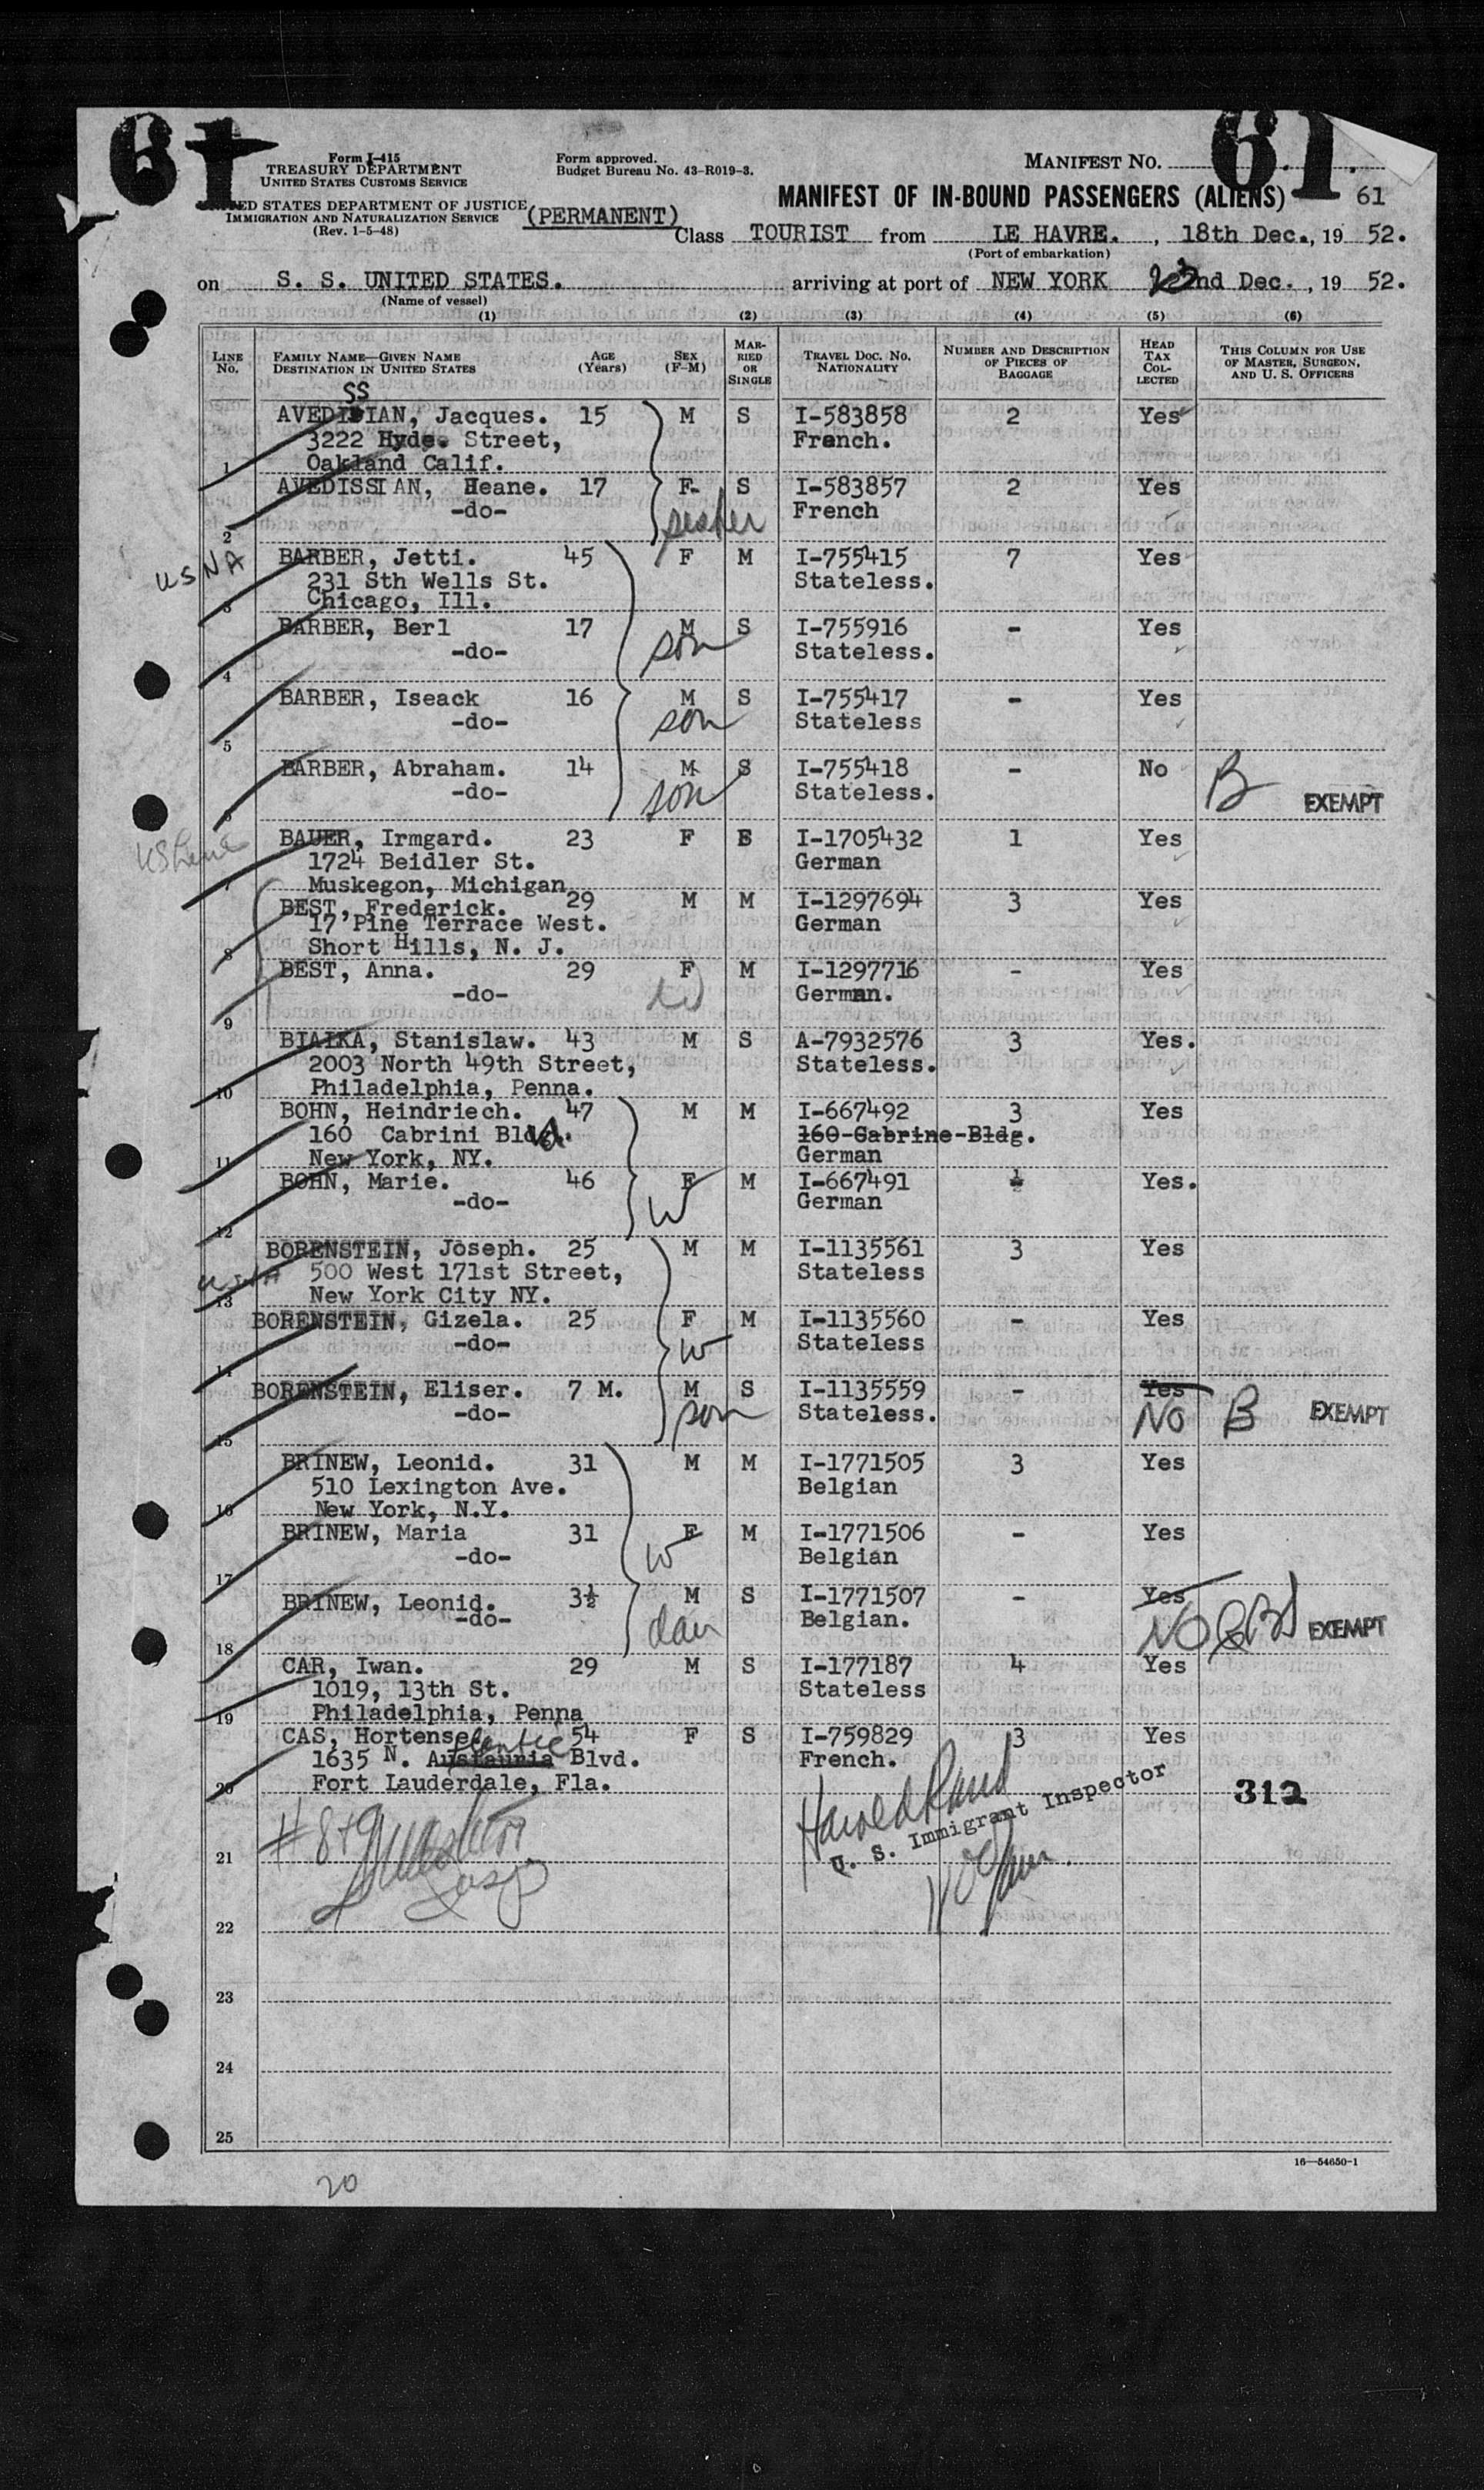 61 61
Form I-415
TREASURY DEPARTMENT
UNITED STATES CUSTOMS SERVICE
UNITED STATES DEPARTMENT OF JUSTICE
IMMIGRATION AND NATURALIZATION SERVICE
(Rev. 1-5-48)
Form approved.
Budget Bureau No. 43-R019-3.
(PERMANENT)
MANIFEST NO.
MANIFEST OF IN-BOUND PASSENGERS (ALIENS) 61
Class TOURIST from LE HAVRE. , 18th Dec., 19 52.
(Port of embarkation)
on S. S. UNITED STATES. arriving at port of NEW YORK nd Dec. , 19 52.
(Name of vessel)
(1) (2) (3) (4) (5) (6)
LINE NO. FAMILY NAME—GIVEN NAME DESTINATION IN UNITED STATES AGE (YEARS) SEX (F-M) MARRIED OR SINGLE TRAVEL DOC. NO. NATIONALITY NUMBER AND DESCRIPTION OF PIECES OF BAGGAGE HEAD TAX COLLECTED THIS COLUMN FOR USE OF MASTER, SURGEON, AND U. S. OFFICERS
SS
AVEDISIAN, Jacques. 15 M S I-583858 2 Yes
3222 Hyde. Street, French.
1 Oakland Calif.
AVEDISSIAN, Heane. 17 F S I-583857 2 Yes
-do- sister French
2
USNA BARBER, Jetti. 45 F M I-755415 7 Yes
231 Sth Wells St. Stateless.
3 Chicago, Ill.
BARBER, Berl 17 M S I-755916 - Yes
-do- son Stateless.
4
BARBER, Iseack 16 M S I-755417 - Yes
-do- son Stateless
5
BARBER, Abraham. 14 M S I-755418 - No B EXEMPT
-do- son Stateless.
6
BAUER, Irmgard. 23 F S I-1705432 1 Yes
1724 Beidler St. German
7 Muskegon, Michigan
BEST, Frederick. 29 M M I-1297694 3 Yes
17 Pine Terrace West. German
8 Short Hills, N. J.
BEST, Anna. 29 F M I-1297716 - Yes
-do- W German.
9
BIAIKA, Stanislaw. 43 M S A-7932576 3 Yes.
2003 North 49th Street, Stateless.
10 Philadelphia, Penna.
BOHN, Heindriech. 47 M M I-667492 3 Yes
160 Cabrini Bld 160-Gabrine-Bldg.
11 New York, NY. German
BOHN, Marie. 46 F M I-667491 Yes.
-do- W German
12
BORENSTEIN, Joseph. 25 M M I-1135561 3 Yes
500 West 171st Street, Stateless
13 New York City NY.
BORENSTEIN, Gizela. 25 F M I-1135560 - Yes
-do- W Stateless
14
BORENSTEIN, Eliser. 7 M. M S I-1135559 - Yes
-do- son Stateless. NO B EXEMPT
15
BRINEW, Leonid. 31 M M I-1771505 3 Yes
510 Lexington Ave. Belgian
16 New York, N.Y.
BRINEW, Maria 31 F M I-1771506 - Yes
-do- W Belgian
17
BRINEW, Leonid. 3½ M S I-1771507 - Yes
-do- dau Belgian. NO EXEMPT
18
CAR, Iwan. 29 M S I-177187 4 Yes
1019, 13th St. Stateless
19 Philadelphia, Penna
CAS, Hortense. 54 F S I-759829 3 Yes
1635 N. Blvd. French.
20 Fort Lauderdale, Fla.
312
#8+9 Harold Rand
U. S. Immigrant Inspector
21
22
23
24
25
16—54650-1
20